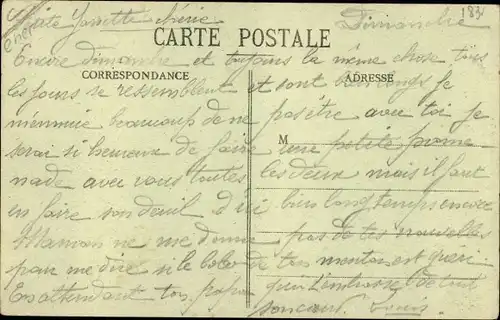 Dimanche 183
Petite Yvette Chérie
CARTE POSTALE
Encore dimanche et toujours la même chose tous
CORRESPONDANCE ADRESSE
les jours se ressemblent et sont bien longs je
m'ennuie beaucoup de ne pas être avec toi je
serai si heureux de faire une petite prome
M
nade avec vous toutes les deux mais il faut
en faire son deuil d'ici bien longtemps encore
Maman ne me donne pas de tes nouvelles
pour me dire si le bobo de ton menton est guéri
En attendant ton papa qui t'embrasse de tout
son cœur Louis